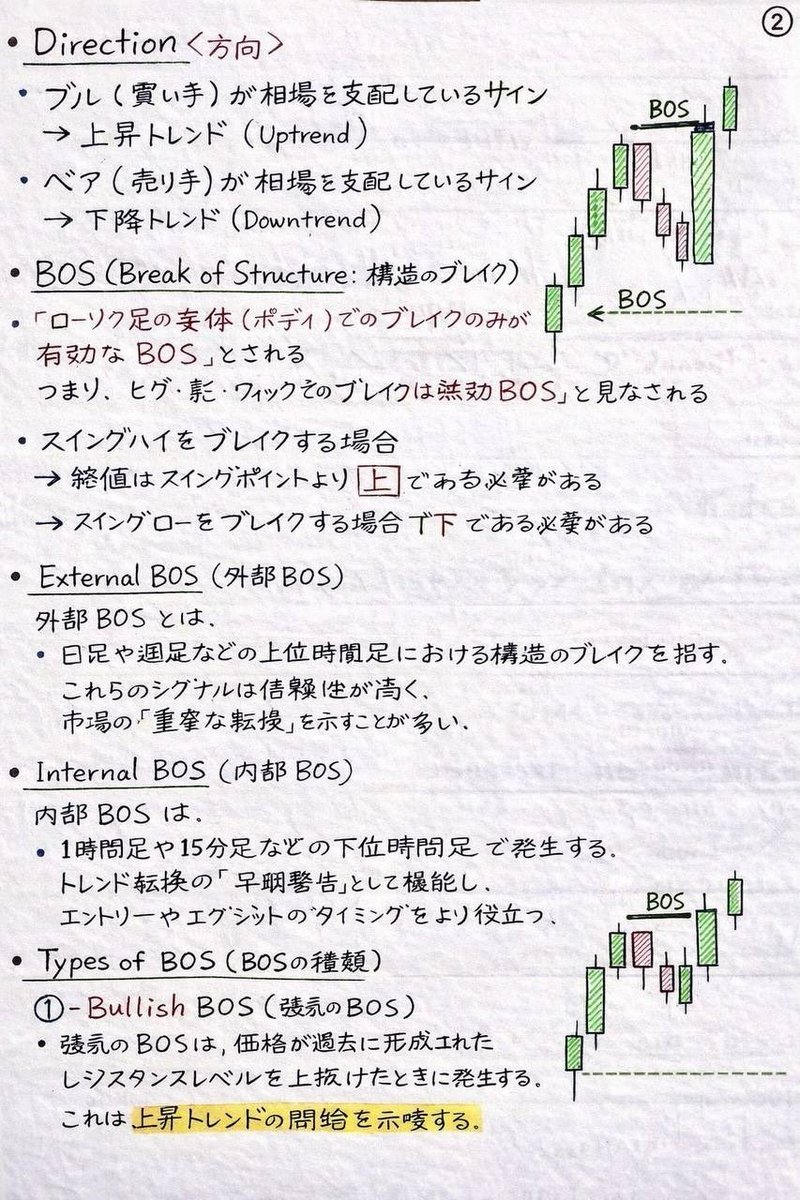 ②
• Direction <方向>
• ブル(買い手)が相場を支配しているサイン
→ 上昇トレンド (Uptrend)
• ベア(売り手)が相場を支配しているサイン
→ 下降トレンド (Downtrend)
• BOS (Break of Structure: 構造のブレイク)
• 「ローソク足の体(ボディ)でのブレイクのみが
有効な BOS」とされる
つまり、ヒグ・影・ウィックそのブレイクは無効BOS」と見なされる
• スイングハイをブレイクする場合
→ 終値はスイングポイントより 上 である必がある
→ スイングローをブレイクする場合 下 である必がある
• External BOS (外部 BOS)
外部 BOS とは、
• 日足や足などの上位時間足における構造のブレイクを指す.
これらのシグナルは信性が高く、
市場の「重な転換」を示すことが多い、
• Internal BOS (内部 BOS)
内部 BOS は、
• 1時間足や15分足などの下位時間足で発生する.
トレンド転換の「早告」として機能し、
エントリーやエグシットのタイミングをより役立つ、
• Types of BOS (BOSの種類)
① - Bullish BOS (のBOS)
• のBOSは, 価格が過去に形成エれた
レジスタンスレベルを上抜けたときに発生する.
これは上昇トレンドの開始を示する.
BOS
BOS
BOS